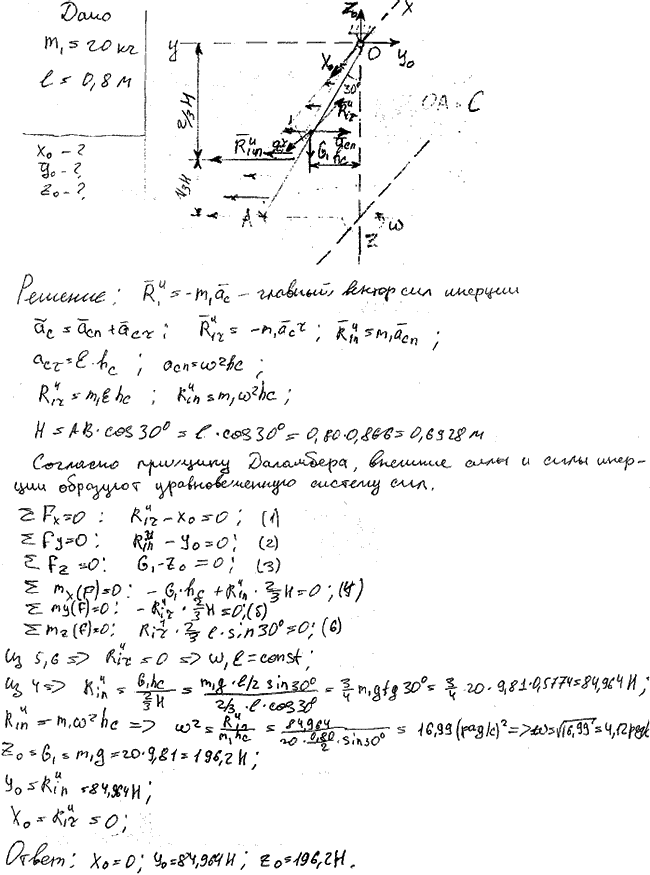 Дано
m₁ = 20 кг
l = 0,8 м
x₀ - ?
y₀ - ?
z₀ - ?
Z₀ X
y O y₀
X₀
30°
2/3 H
R̄₁ₙᴵ R̄₁τᴵ
OA = C
ācn
G₁ hc
1/3 H
A ω
Z
Решение: R̄₁ᴵ = -m₁āc – главный вектор сил инерции
āc = ācn + ācτ; R̄₁τᴵ = -m₁ācτ; R̄₁nᴵ = m₁ācn;
acτ = ℓ·hc; acn = ω²hc;
R₁τᴵ = m₁ℓhc; R₁nᴵ = m₁ω²hc;
H = AB·cos30° = l·cos30° = 0,80·0,866 = 0,6928 м
Согласно принципу Даламбера, внешние силы и силы инер-
ции образуют уравновешенную систему сил.
ΣFx=0: R₁τᴵ - X₀ = 0; (1)
ΣFy=0: R₁nᴵ - y₀ = 0; (2)
ΣFz=0: G₁ - Z₀ = 0; (3)
Σmx(F)=0: -G₁·hc + R₁nᴵ·2/3H = 0; (4)
Σmy(F)=0: -R₁τᴵ·2/3H = 0; (5)
Σmz(F)=0: R₁τᴵ·2/3 l·sin30° = 0; (6)
Из 5,6 => R₁τᴵ = 0 => ω, ℓ = const;
Из 4 => R₁nᴵ = G₁hc/(2/3H) = m₁g·l/2 sin30°/(2/3·l·cos30°) = 3/4 m₁g tg30° = 3/4·20·9,81·0,5774 = 84,964 Н;
R₁nᴵ = m₁ω²hc => ω² = R₁nᴵ/(m₁hc) = 84,964/(20·0,80/2·sin30°) = 16,99 (рад/с)² => ω = √16,99 = 4,12 рад/с
Z₀ = G₁ = m₁g = 20·9,81 = 196,2 Н;
y₀ = R₁nᴵ = 84,964 Н;
X₀ = R₁τᴵ = 0;
Ответ: X₀ = 0; y₀ = 84,964 Н; Z₀ = 196,2 Н.